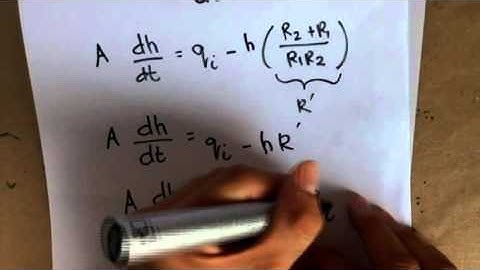 A dh/dt = qᵢ - h ( R₂ + R₁ / R₁R₂ )
R'
A dh/dt = qᵢ - hR'
A d